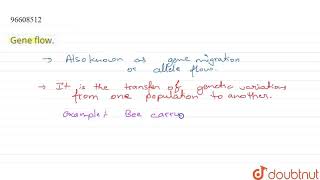 96608512
Gene flow.
→ Also known as gene migration
or allele flow.
→ It is the transfer of genetic variations
from one population to another.
example: Bee carry
doubtnut